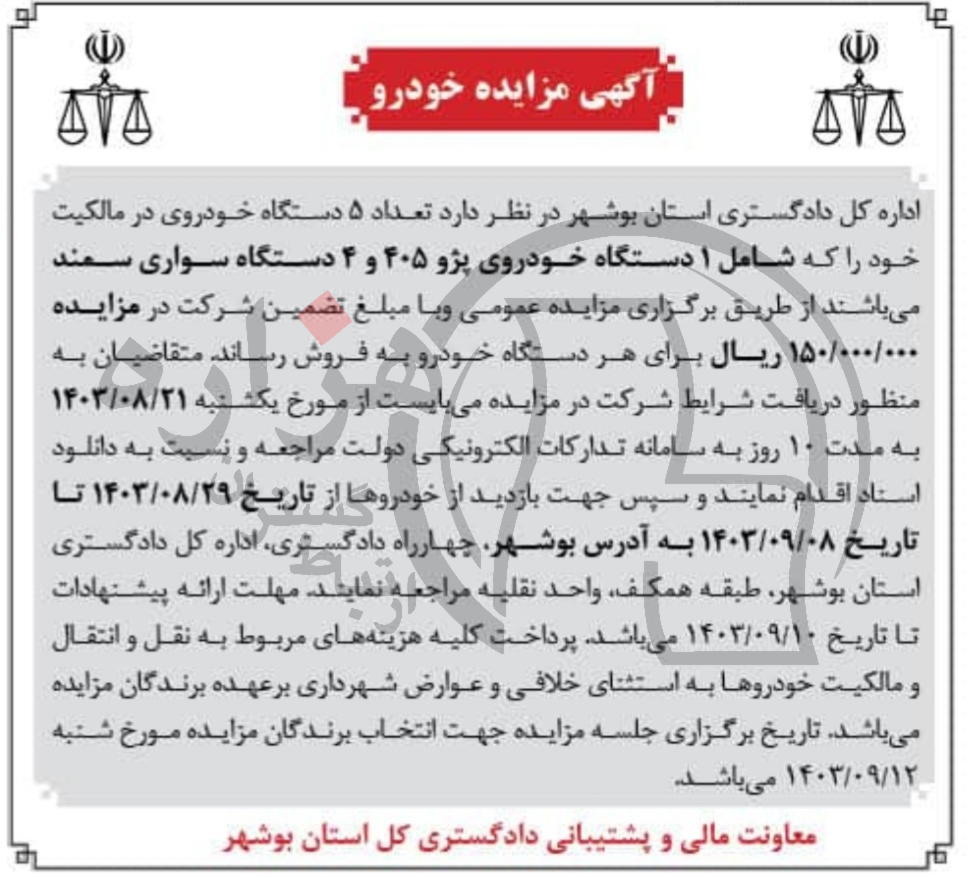 آگهی مزایده خودرو
اداره کل دادگستری استان بوشهر در نظر دارد تعداد ۵ دستگاه خودروی در مالکیت
خود را که شامل ۱ دستگاه خودروی پژو ۴۰۵ و ۴ دستگاه سواری سمند
می‌باشند از طریق برگزاری مزایده عمومی وبا مبلغ تضمین شرکت در مزایده
۱۵۰/۰۰۰/۰۰۰ ریال برای هر دستگاه خودرو به فروش رساند. متقاضیان به
منظور دریافت شرایط شرکت در مزایده می‌بایست از مورخ یکشنبه ۱۴۰۳/۰۸/۲۱
به مدت ۱۰ روز به سامانه تدارکات الکترونیکی دولت مراجعه و نسبت به دانلود
اسناد اقدام نمایند و سپس جهت بازدید از خودروها از تاریخ ۱۴۰۳/۰۸/۲۹ تا
تاریخ ۱۴۰۳/۰۹/۰۸ به آدرس بوشهر، چهارراه دادگستری، اداره کل دادگستری
استان بوشهر، طبقه همکف، واحد نقلیه مراجعه نمایند. مهلت ارائه پیشنهادات
تا تاریخ ۱۴۰۳/۰۹/۱۰ می‌باشد. پرداخت کلیه هزینه‌های مربوط به نقل و انتقال
و مالکیت خودروها به استثنای خلافی و عوارض شهرداری برعهده برندگان مزایده
می‌باشد. تاریخ برگزاری جلسه مزایده جهت انتخاب برندگان مزایده مورخ شنبه
۱۴۰۳/۰۹/۱۲ می‌باشد.
معاونت مالی و پشتیبانی دادگستری کل استان بوشهر
هزاره
گستر
ارتباط